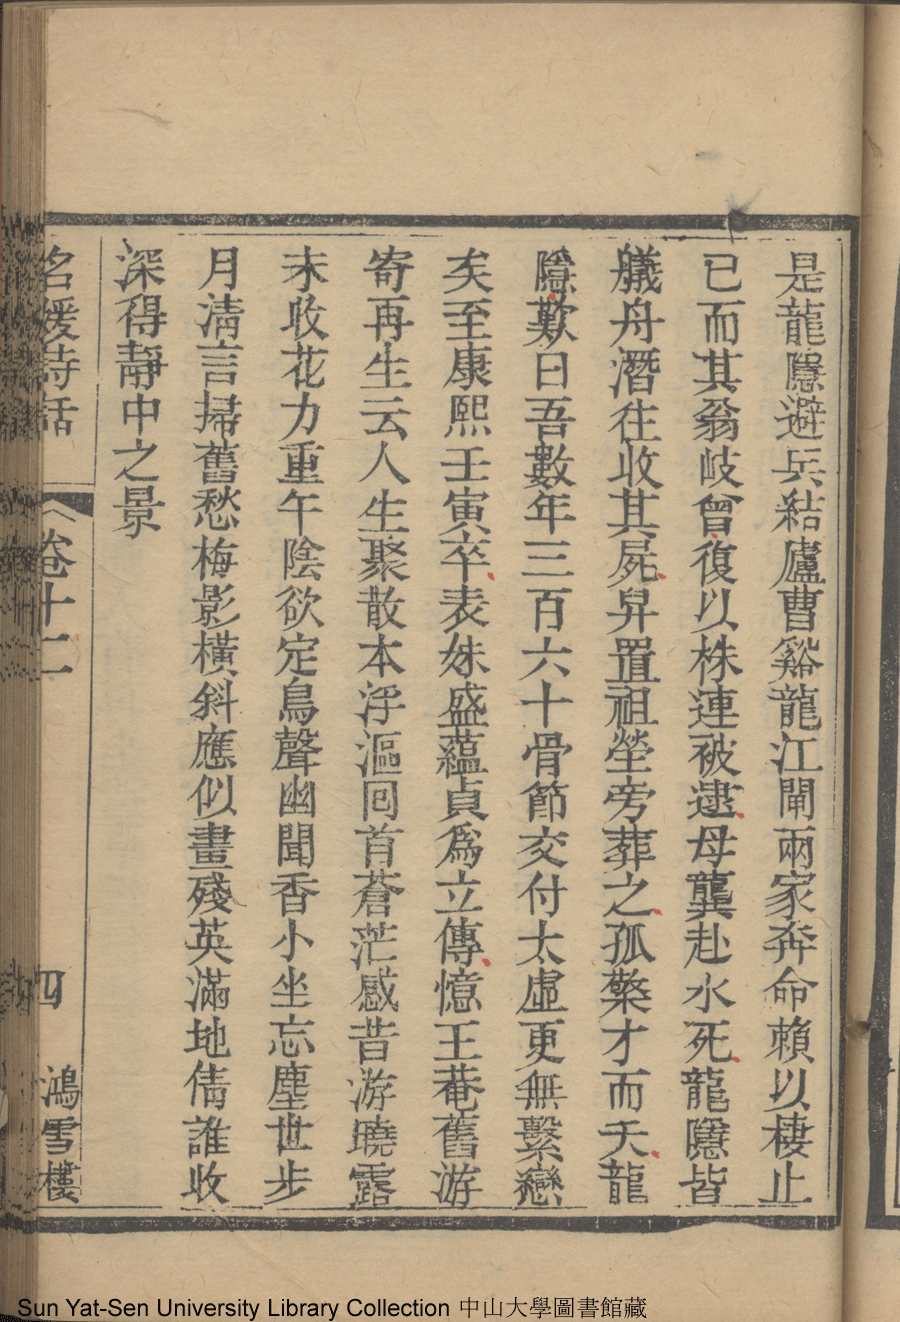 是龍隱避兵結廬曹谿龍江閘兩家奔命賴以棲止
已而其翁岐曾復以株連被逮母龔赴水死龍隱皆
艤舟潛往收其屍舁置祖塋旁葬之孤檠才而夭龍
隱歎曰吾數年三百六十骨節交付太虛更無繫戀
矣至康熙壬寅卒表姝盛蘊貞為立傳憶王菴舊游
寄再生云人生聚散本浮漚回首蒼茫感昔游曉露
未收花力重午陰欲定鳥聲幽聞香小坐忘塵世步
月清言掃舊愁梅影橫斜應似畫殘英滿地倩誰收
深得靜中之景
名媛詩話 卷十二 四 鴻雪樓
Sun Yat-Sen University Library Collection 中山大學圖書館藏